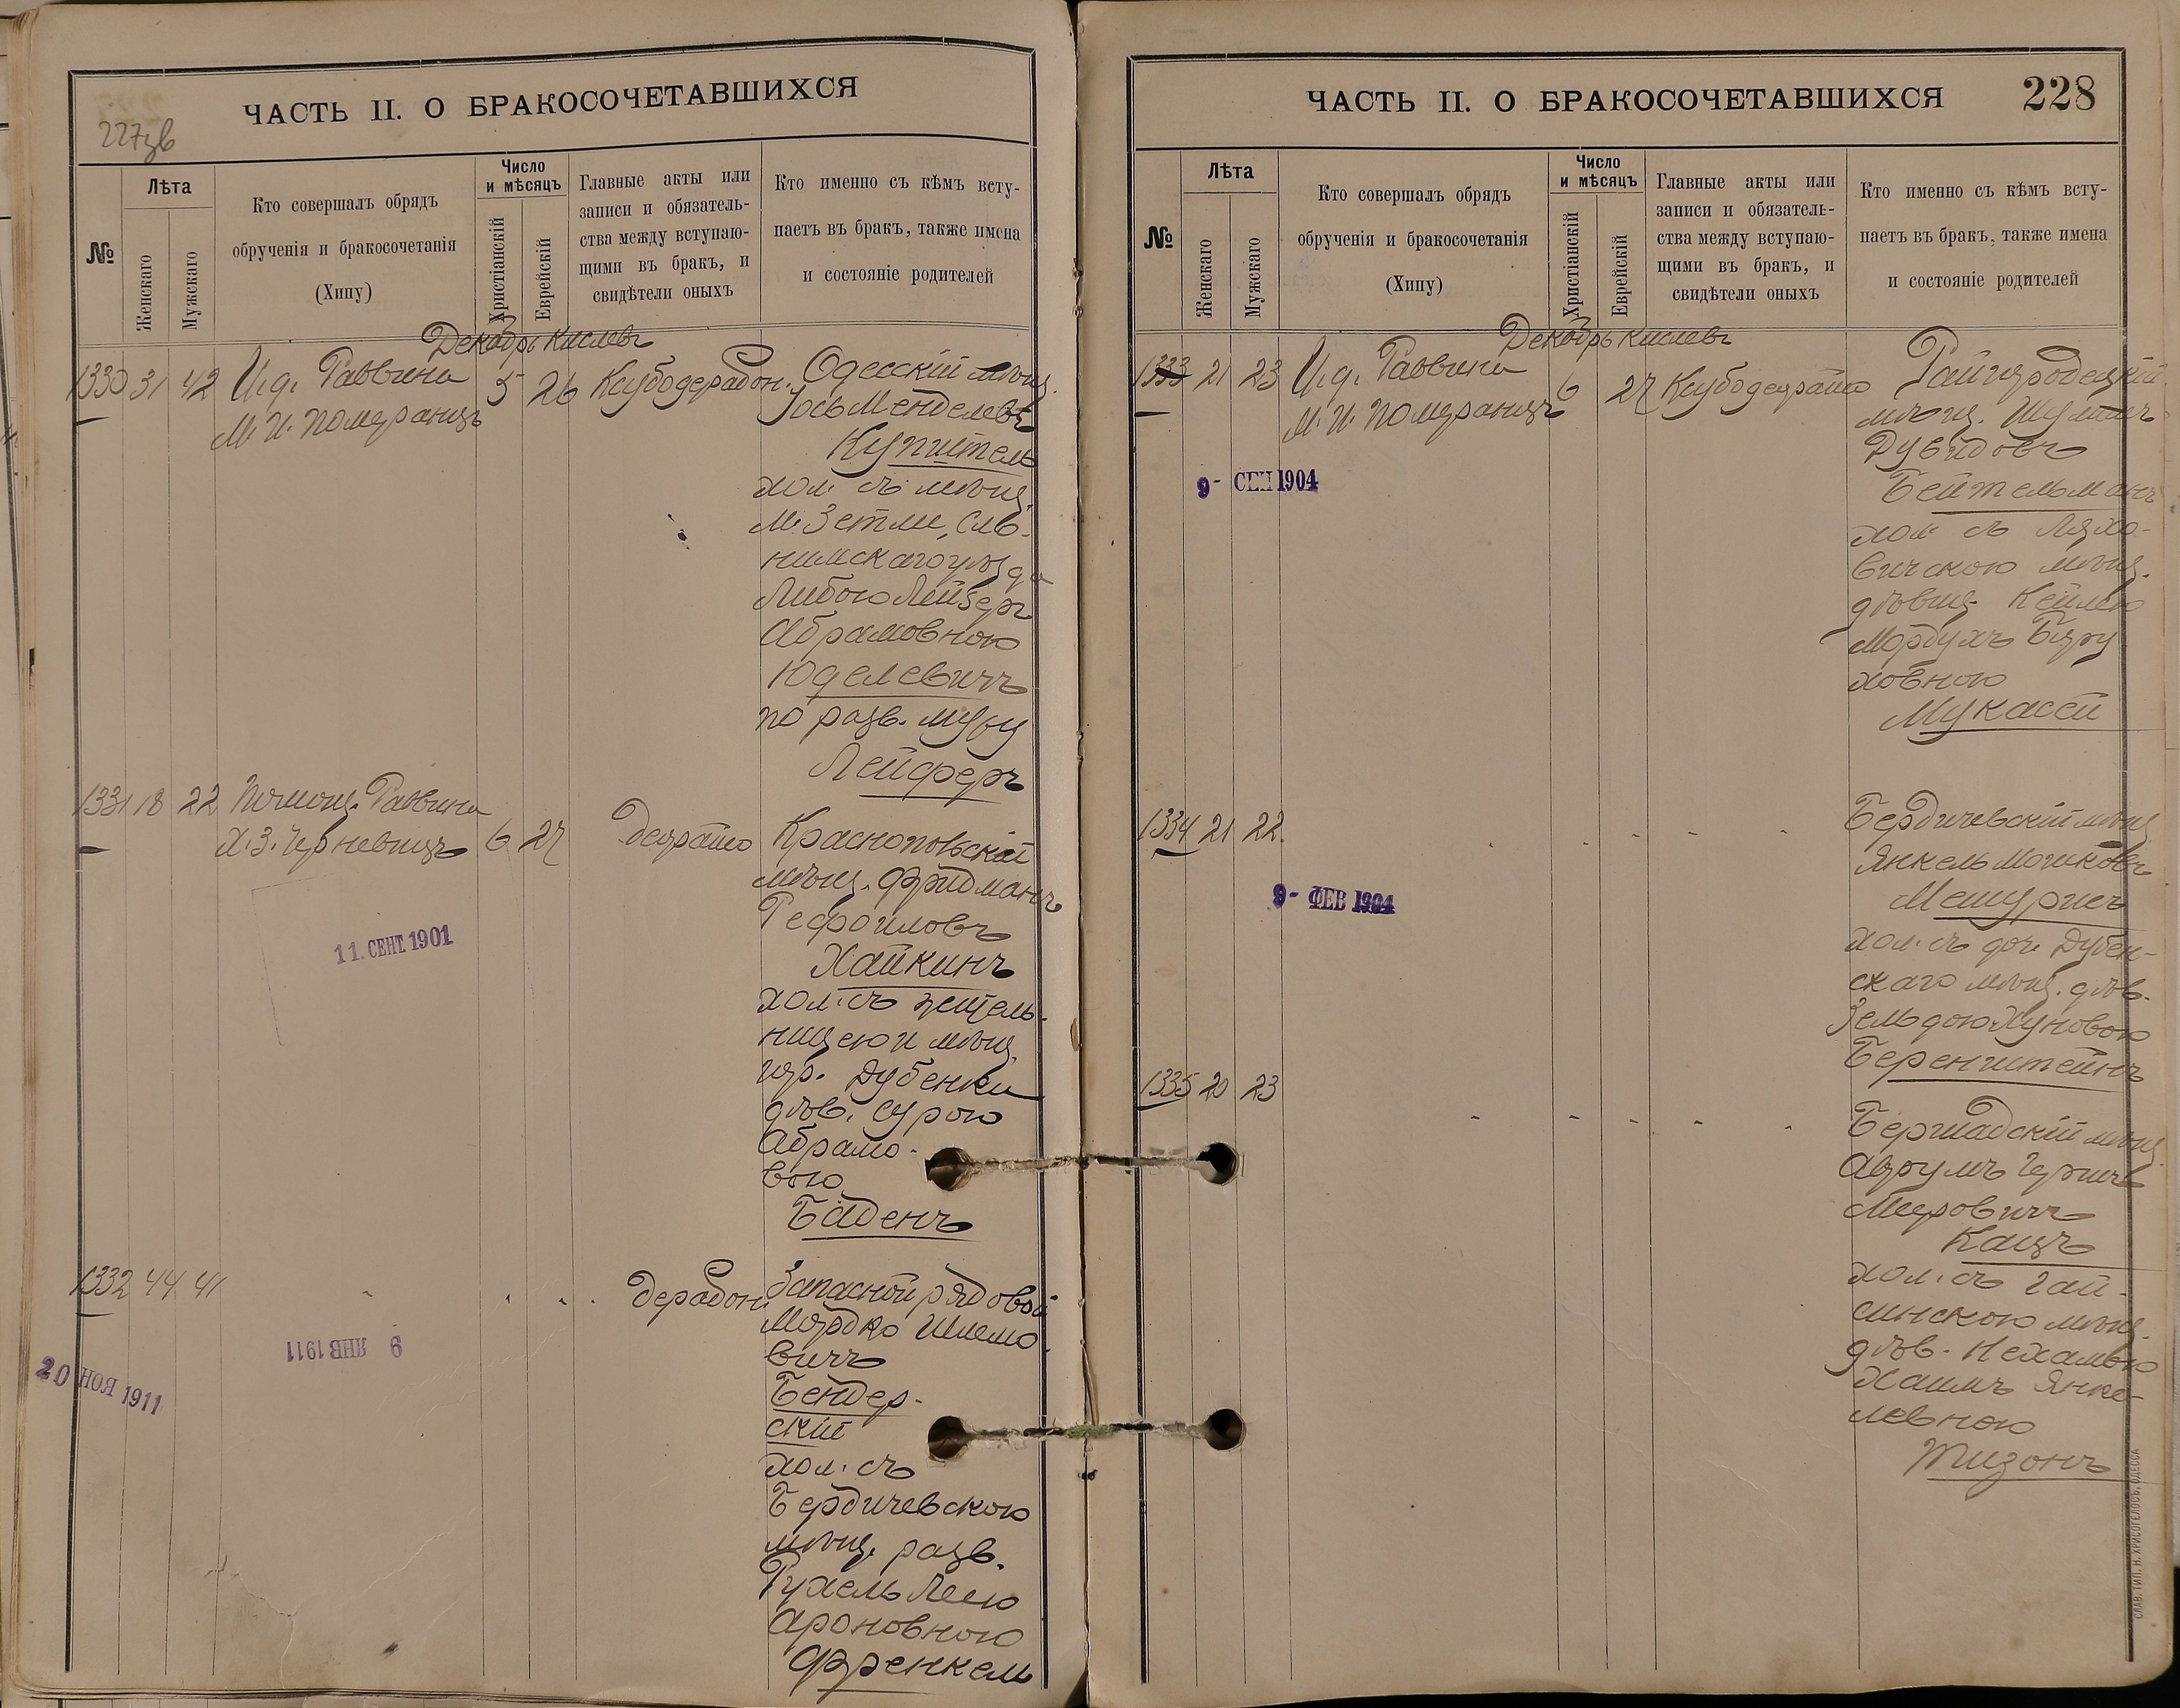 ЧАСТЬ II. О БРАКОСОЧЕТАВШИХСЯ
227зв
№
Лѣта
Женскаго
Мужскаго
Кто совершалъ обрядъ
обрученія и бракосочетанія
(Хипу)
Число
и мѣсяцъ
Христіанскій
Еврейскій
Главные акты или
записи и обязатель-
ства между вступаю-
щими въ бракъ, и
свидѣтели оныхъ
Кто именно съ кѣмъ всту-
паетъ въ бракъ, также имена
и состояніе родителей
Декабрь Кислевъ
1330 31 42 И.д. Раввина 5 26
М. И. Померанцъ
Одесскій мѣщ.
Іось Менделевъ
Купитель
хол. съ мѣщ.
м. Зетли, Сло-
нимскаго уѣзда
Либою Лейзеръ
Абрамовною
Юделевичъ
по разв. мужу
Лейферъ
1331 18 22 Помощ. Раввина
Х. З. Черневицъ 6 27
Краснопольскій
мѣщ. Фридманъ
Рефоиловъ
Хайкинъ
хол. съ жители-
ницею и мѣщ.
гор. Дубенки
дѣв. Сурою
Абрамо-
вою
Баденъ
11. СЕНТ. 1901
1332 44 41
Запасной рядовой
Мордко Шлемо-
вичъ
Бендер-
скій
хол. съ
Бердичевскою
мѣщ. разв.
Рухель Леею
Ароновною
Френкель
9 ЯНВ 1911
20 НОЯ 1911
ЧАСТЬ II. О БРАКОСОЧЕТАВШИХСЯ
228
№
Лѣта
Женскаго
Мужскаго
Кто совершалъ обрядъ
обрученія и бракосочетанія
(Хипу)
Число
и мѣсяцъ
Христіанскій
Еврейскій
Главные акты или
записи и обязатель-
ства между вступаю-
щими въ бракъ, и
свидѣтели оныхъ
Кто именно съ кѣмъ всту-
паетъ въ бракъ, также имена
и состояніе родителей
Декабрь Кислевъ
1333 21 23 И.д. Раввина 6 27
М. И. Померанцъ
Райгородецкій
мѣщ. Шулимъ
Дувидовъ
Бейтельманъ
хол. съ Ляхо-
вичскою мѣщ.
дѣвиц. Кейлею
Мордухъ Беру
ховною
Мукасей
9- СЕН 1904
1334 21 22
Бердичевскій мѣщ.
Янкель Мошковъ
Мешурисъ
хол. съ доч. Дубен-
скаго мѣщ. дѣв.
Зельдою Хуновою
Беренштейнъ
9- ФЕВ 1904
1335 20 23
Бершадскій мѣщ.
Аврумъ Гершъ
Мееровичъ
Кацъ
хол. съ Гай-
синскою мѣщ.
дѣв. Нехамою
Хаимъ Янке-
левною
Тизонъ
СЛАВ. ТИП. Н. ХРИСОГЕЛОСЪ, ОДЕССА